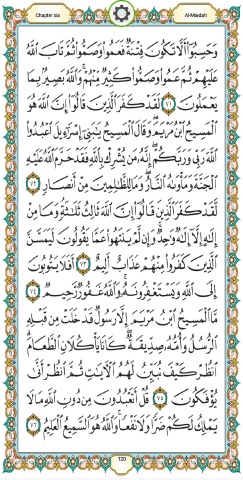 Chapter six
Al-Maidah
وَحَسِبُوٓا۟ أَلَّا تَكُونَ فِتْنَةٌ فَعَمُوا۟ وَصَمُّوا۟ ثُمَّ تَابَ ٱللَّهُ
عَلَيْهِمْ ثُمَّ عَمُوا۟ وَصَمُّوا۟ كَثِيرٌ مِّنْهُمْ وَٱللَّهُ بَصِيرٌۢ بِمَا
يَعْمَلُونَ ٧١ لَقَدْ كَفَرَ ٱلَّذِينَ قَالُوٓا۟ إِنَّ ٱللَّهَ هُوَ
ٱلْمَسِيحُ ٱبْنُ مَرْيَمَ وَقَالَ ٱلْمَسِيحُ يَٰبَنِىٓ إِسْرَٰٓءِيلَ ٱعْبُدُوا۟
ٱللَّهَ رَبِّى وَرَبَّكُمْ إِنَّهُۥ مَن يُشْرِكْ بِٱللَّهِ فَقَدْ حَرَّمَ ٱللَّهُ عَلَيْهِ
ٱلْجَنَّةَ وَمَأْوَىٰهُ ٱلنَّارُ وَمَا لِلظَّٰلِمِينَ مِنْ أَنصَارٍ ٧٢
لَّقَدْ كَفَرَ ٱلَّذِينَ قَالُوٓا۟ إِنَّ ٱللَّهَ ثَالِثُ ثَلَٰثَةٍ وَمَا مِنْ
إِلَٰهٍ إِلَّآ إِلَٰهٌ وَٰحِدٌ وَإِن لَّمْ يَنتَهُوا۟ عَمَّا يَقُولُونَ لَيَمَسَّنَّ
ٱلَّذِينَ كَفَرُوا۟ مِنْهُمْ عَذَابٌ أَلِيمٌ ٧٣ أَفَلَا يَتُوبُونَ
إِلَى ٱللَّهِ وَيَسْتَغْفِرُونَهُۥ وَٱللَّهُ غَفُورٌ رَّحِيمٌ ٧٤
مَّا ٱلْمَسِيحُ ٱبْنُ مَرْيَمَ إِلَّا رَسُولٌ قَدْ خَلَتْ مِن قَبْلِهِ
ٱلرُّسُلُ وَأُمُّهُۥ صِدِّيقَةٌ كَانَا يَأْكُلَانِ ٱلطَّعَامَ
ٱنظُرْ كَيْفَ نُبَيِّنُ لَهُمُ ٱلْءَايَٰتِ ثُمَّ ٱنظُرْ أَنَّىٰ
يُؤْفَكُونَ ٧٥ قُلْ أَتَعْبُدُونَ مِن دُونِ ٱللَّهِ مَا لَا
يَمْلِكُ لَكُمْ ضَرًّا وَلَا نَفْعًا وَٱللَّهُ هُوَ ٱلسَّمِيعُ ٱلْعَلِيمُ ٧٦
120